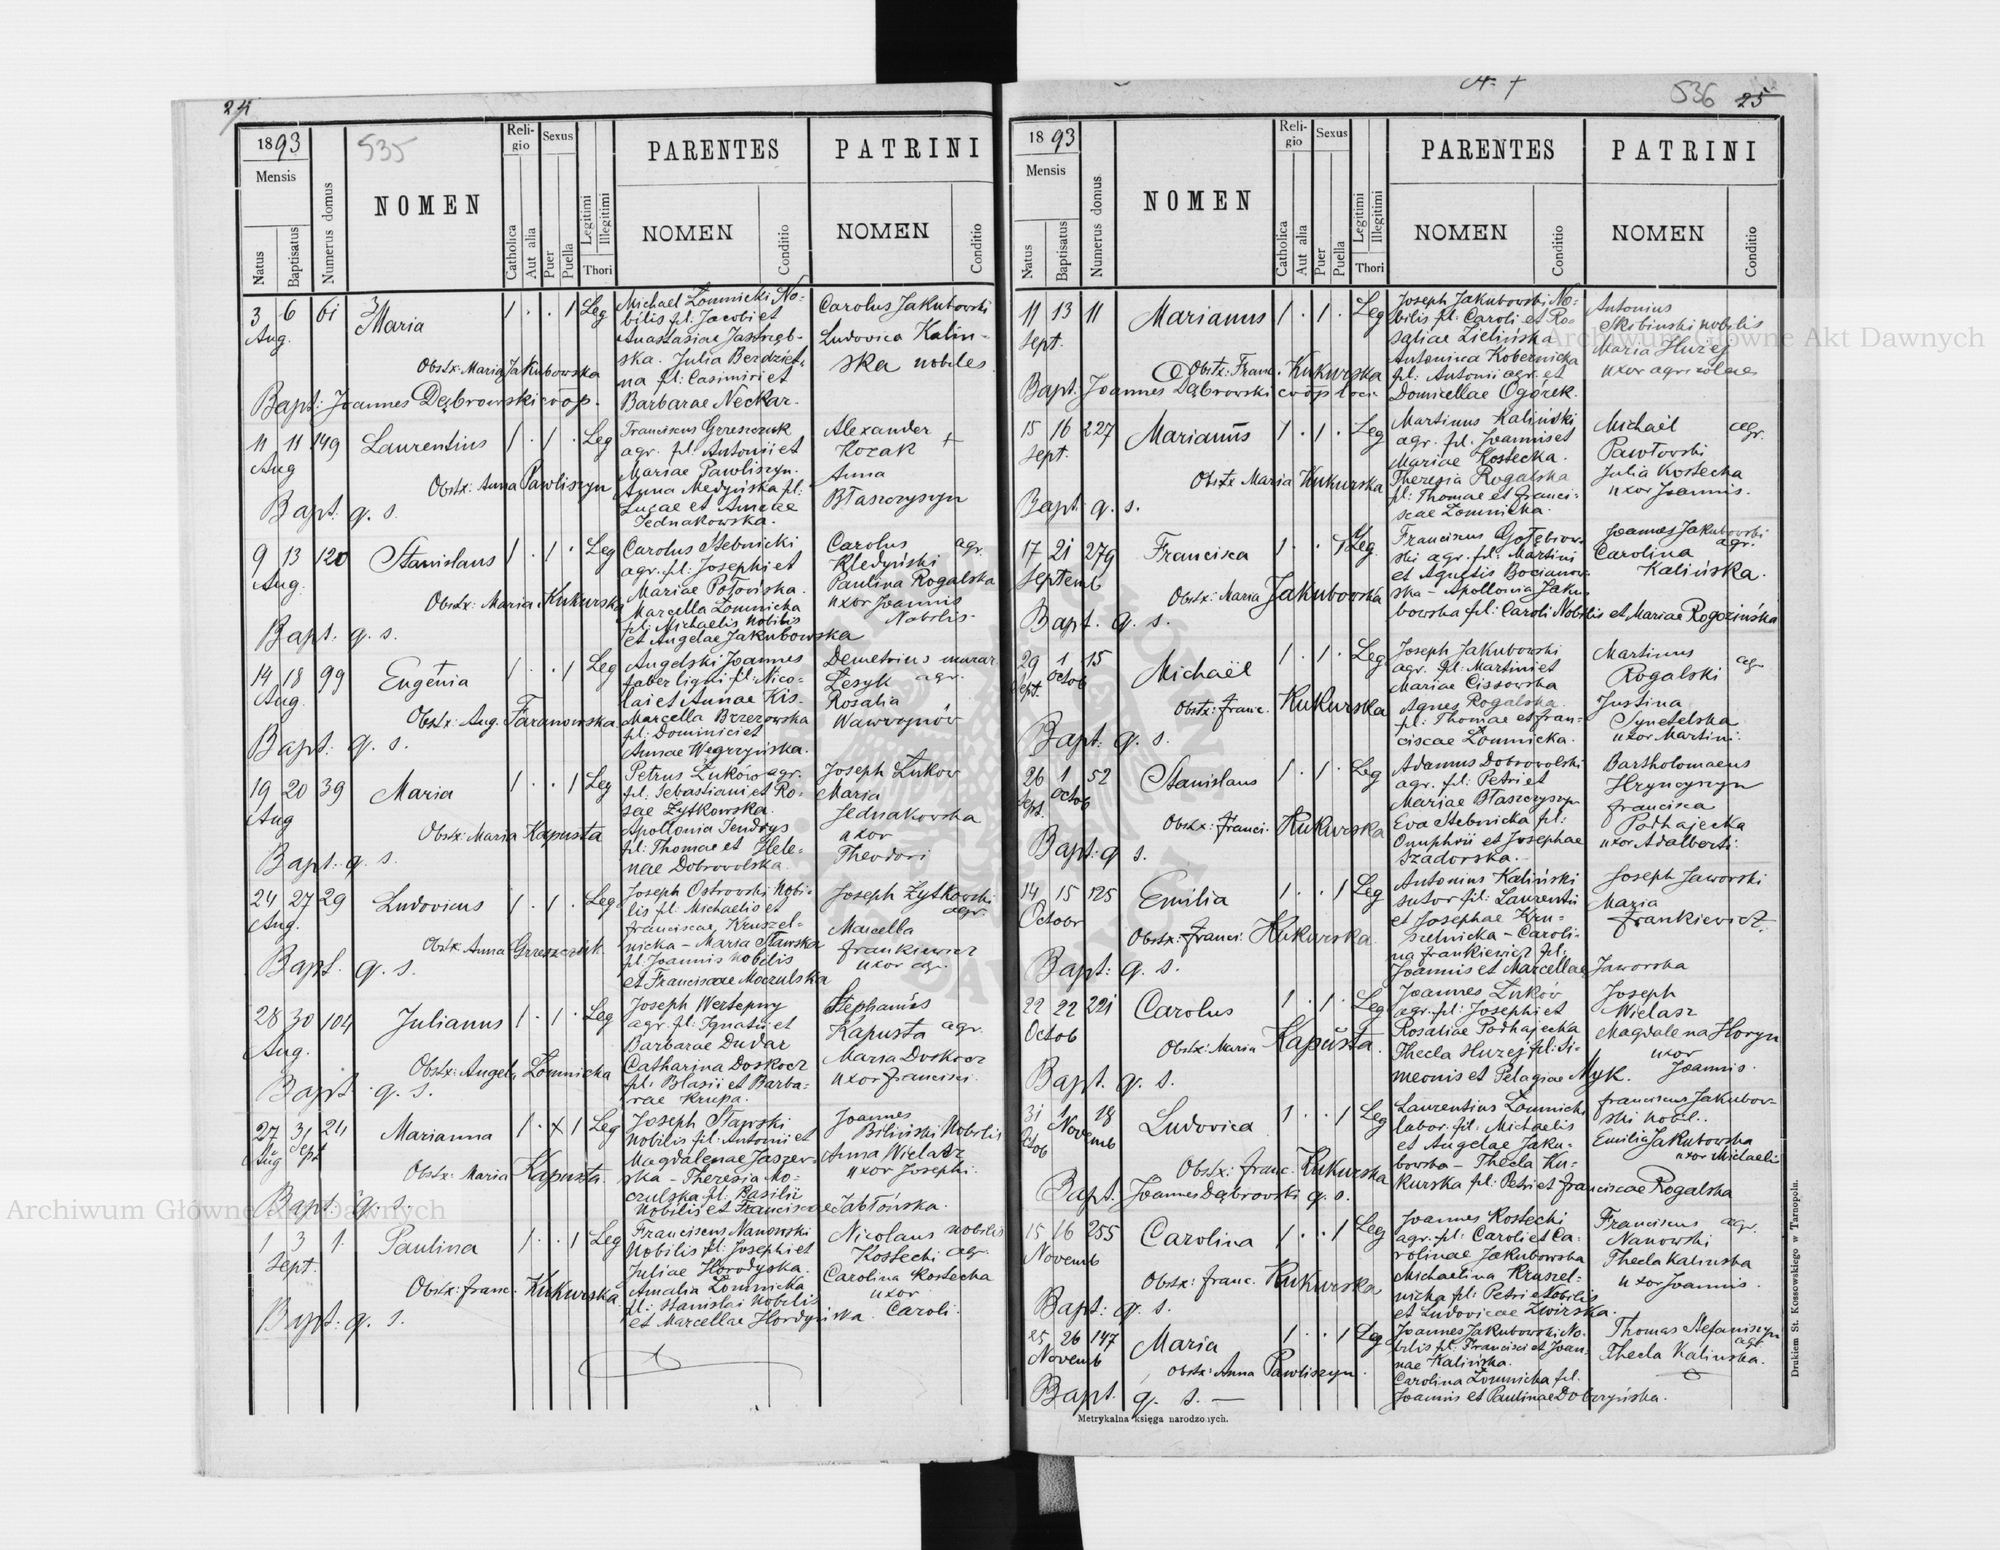 24
1893
535
Mensis
Natus
Baptisatus
Numerus domus
NOMEN
Reli-
gio
Catholica
Aut alia
Sexus
Puer
Puella
Legitimi
Illegitimi
Thori
PARENTES
NOMEN
Conditio
PATRINI
NOMEN
Conditio
3 6 61 Maria 1 . . 1 Leg
Aug.
Michael Łomnicki No-
bilis fil. Jacobi et
Anastasiae Jastrzęb-
ska. Julia Berdziel-
na fil: Casimiri et
Barbarae Neckar.
Carolus Jakubowski
Ludovica Kalin-
ska nobiles
Obstx: Maria Jakubowska
Bapt: Joannes Dąbrowski coop.
11 11 149 Laurentius 1 . 1 . Leg
Aug
Franciscus Grzeszczuk
agr. fil: Antonii et
Mariae Pawliszyn.
Anna Medyńska fil:
Lucae et Amalae
Jednakowska.
Alexander
Kozak +
Anna
Błaszczyszyn
Obstx: Anna Pawliszyn
Bapt. q. s.
9 13 120 Stanislaus 1 . 1 . Leg
Aug.
Carolus Stebnicki
agr. fil: Josephi et
Mariae Potońska.
Marcella Łomnicka
fil: Michaelis nobilis
et Angelae Jakubowska
Carolus agr.
Kledyński
Paulina Rogalska
uxor Joannis
Nobilis.
Obstx: Maria Kukurska
Bapt: q. s.
14 18 99 Eugenia 1 . . 1 Leg
Aug.
Angelski Joannes
faber ligni fil: Nico-
lai et Annae Kis-
Marcella Brzezowska
fil: Dominici et
Annae Węgrzyńska.
Demetrius murar
Lesyk agr.
Rosalia
Wawrzynów
Obstx: Aug. Taranowska
Bapt: q. s.
19 20 39 Maria 1 . . 1 Leg
Aug
Petrus Żuków agr.
fil: Sebastiani et Ro-
sae Żytkowska.
Apollonia Jendrys
fil: Thomae et Hele-
nae Dobrovolska.
Joseph Żukow
Maria
Jednakowska
uxor
Theodori
Obstx: Maria Kapusta
Bapt: q. s.
24 27 29 Ludovicus 1 . 1 . Leg
Aug.
Joseph Ostrowski nobi-
lis fil Michaelis et
Franciscae Kruszel-
nicka - Maria Stawska
fil: Joannis nobilis
et Franciscae Moczulska
Joseph Żytkowski
agr.
Marcella
Frankiewicz
uxor agr.
Obstx Anna Grzeszczuk.
Bapt. q. s.
28 30 104 Julianus 1 . 1 . Leg
Aug.
Joseph Wertepny
agr. fil: Ignatii et
Barbarae Dudar
Catharina Doskocz
fil: Blasii et Barba-
rae Krupa.
Stephanus
Kapusta agr.
Maria Doskocz
uxor Francisci.
Obstx: Angela Łomnicka
Bapt. q. s.
27 3 24 Marianna 1 . x 1 Leg
Aug Sept
Joseph Stawski
Nobilis fil: Antonii et
Magdalenae Jaszew-
ska - Theresia Mo-
czulska fil: Basilii
Nobilis et Franciscae Jabłońska.
Joannes
Biliński Nobilis
Anna Wielasz
uxor Josephi.
Obstx: Maria Kapusta.
Bapt. q. s.
1 3 1 Paulina 1 . . 1 Leg
Sept.
Franciscus Nanowski
Nobilis fil: Josephi et
Juliae Horodyska.
Amalia Łomnicka
fil: Stanislai Nobilis
et Marcellae Hordyńska.
Nicolaus nobilis
Kostecki agr.
Carolina Kostecka
uxor
Caroli.
Obstx: Franc. Kukurska
Bapt. q. s.
536 25
1893
Mensis
Natus
Baptisatus
Numerus domus
NOMEN
Reli-
gio
Catholica
Aut alia
Sexus
Puer
Puella
Legitimi
Illegitimi
Thori
PARENTES
NOMEN
Conditio
PATRINI
NOMEN
Conditio
11 13 11 Marianus 1 . 1 . Leg
Sept.
Joseph Jakubowski No-
bilis fil: Caroli et Ro-
saliae Zielińska
Antonina Kobernicka
fil: Antonii agr. et
Domicellae Ogórek.
Antonius
Skibinski nobilis
Maria Huzej
uxor agricolae
Obstx: Franc. Kukurska
Bapt: Joannes Dąbrowski coop loci
15 16 227 Marianus 1 . 1 . Leg
Sept.
Martinus Kaliński
agr. fil: Joannis et
Mariae Kostecka.
Theresia Rogalska
fil: Thomae et Franci-
scae Łomnicka.
Michaël agr.
Pawłovski
Julia Kostecka
uxor Joannis.
Obstx Maria Kukurska
Bapt. q. s.
17 21 279 Francisca 1 . . 1 Leg.
Septemb
Franciscus Gołębiow-
ski agr. fil: Martini
et Agnetis Bocianow-
ska - Apollonia Jaku
bowska fil: Caroli Nobilis et Mariae Rogozińska
Joannes Jakubovski
agr.
Carolina
Kalińska.
Obstx: Maria Jakubowska
Bapt. q. s.
29 1 15 Michaël 1 . 1 . Leg
Sept. Octob
Joseph Jakubowski
agr. fil: Martini et
Mariae Cissowska
Agnes Rogalska.
fil: Thomae et Fran-
ciscae Łomnicka.
Martinus
Rogalski agr
Justina
Synetelska
uxor Martini.
Obstx: Franc. Kukurska
Bapt: q. s.
26 1 52 Stanislaus 1 . 1 . Leg
Sept. Octob
Adamus Dobrovolski
agr. fil: Petri et
Mariae Błaszczyszyn
Eva Stebnicka fil:
Onuphrii et Josephae
Szadorska.
Bartholomaeus
Hryncyszyn
Francisca
Podhajecka
uxor Adalberti.
Obstx: Franci. Kukurska
Bapt: q s.
14 15 125 Emilia 1 . . 1 Leg
Octobr
Antonius Kaliński
sutor fil: Laurentii
et Josephae Kru-
szelnicka - Caroli-
na Frankiewicz fil:
Joannis et Marcellae Jaworska
Joseph Jaworski
Maria
Frankiewicz.
Obstx: Franci. Kukurska
Bapt: q. s.
22 22 221 Carolus 1 . 1 . Leg
Octob
Joannes Żuków
agr. fil: Josephi et
Rosaliae Podhajecka
Thecla Huzej fil: Si-
meonis et Pelagiae Myk.
Joseph
Wielasz
Magdalena Horyn
uxor
Joannis.
Obstx: Maria Kapusta.
Bapt. q. s.
31 1 18 Ludovica 1 . . 1 Leg
Octob Novemb
Laurentius Łomnicki
labor. fil: Michaelis
et Angelae Jaku-
bowska - Thecla Ku-
kurska fil: Petri et Franciscae Rogalska
Franciscus Jakubow-
ski nobil.
Emilia Jakubowska
uxor Michaeli
Obstx: Franc. Kukurska
Bapt. Joannes Dąbrowski q. s.
15 16 255 Carolina 1 . . 1 Leg
Novemb
Joannes Kostecki
agr. fil: Caroli et Ca-
rolinae Jakubowska
Michaelina Kruszel-
nicka fil: Petri Nobilis
et Ludovicae Zwirska.
Franciscus agr.
Nanowski
Thecla Kalinska
uxor Joannis.
Obstx: Franc. Kukurska
Bapt: q. s.
25 26 147 Maria 1 . . 1 Leg
Novemb
Joannes Jakubowski No-
bilis fil: Francisci et Joan-
nae Kalińska.
Carolina Łomnicka fil.
Joannis et Paulinae Dobrzyńska.
Thomas Stefaniszyn
agr.
Thecla Kalinska.
Obstx: Anna Pawliszyn.
Bapt. q. s. —
Metrykalna księga narodzonych.
Drukiem St. Kossowskiego w Tarnopolu.
Archiwum Główne Akt Dawnych
Archiwum Główne Akt Dawnych